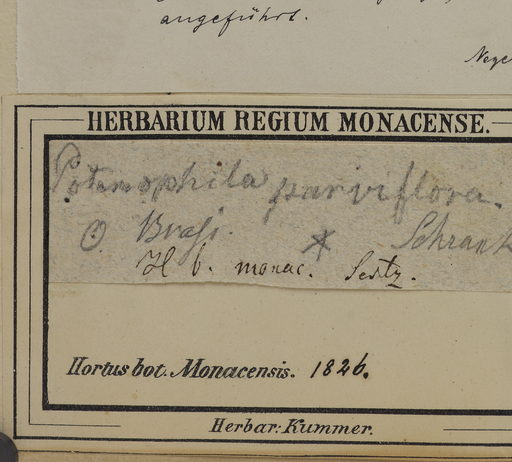 angeführt.
Nege
HERBARIUM REGIUM MONACENSE.
Potamophila parviflora.
O Bras. * Schrank
H b. monac. Seitz.
Hortus bot. Monacensis. 1826.
Herbar: Kummer.